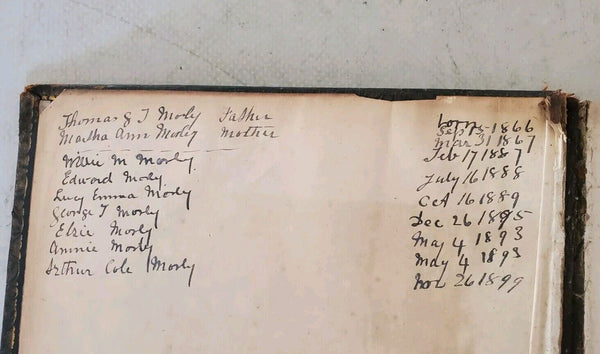 Thomas & T Morly Father born
Sep 15 - 1866
Martha Ann Morly Mother Mar 31 1867
Willie M Morly Feb 17 1887
Edward Morly July 16 1888
Lucy Emma Morly Oct 16 1889
George T Morly Dec 26 1895
Elsie Morly May 4 1893
Annie Morly May 4 1893
Arthur Cole Morly Nov 26 1899